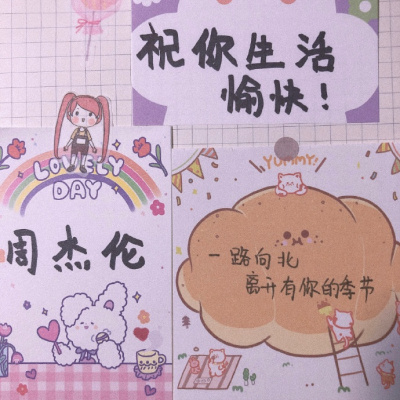 祝你生活
愉快！
LOVELY
DAY
周杰伦
YUMMY
一路向北
离开有你的季节